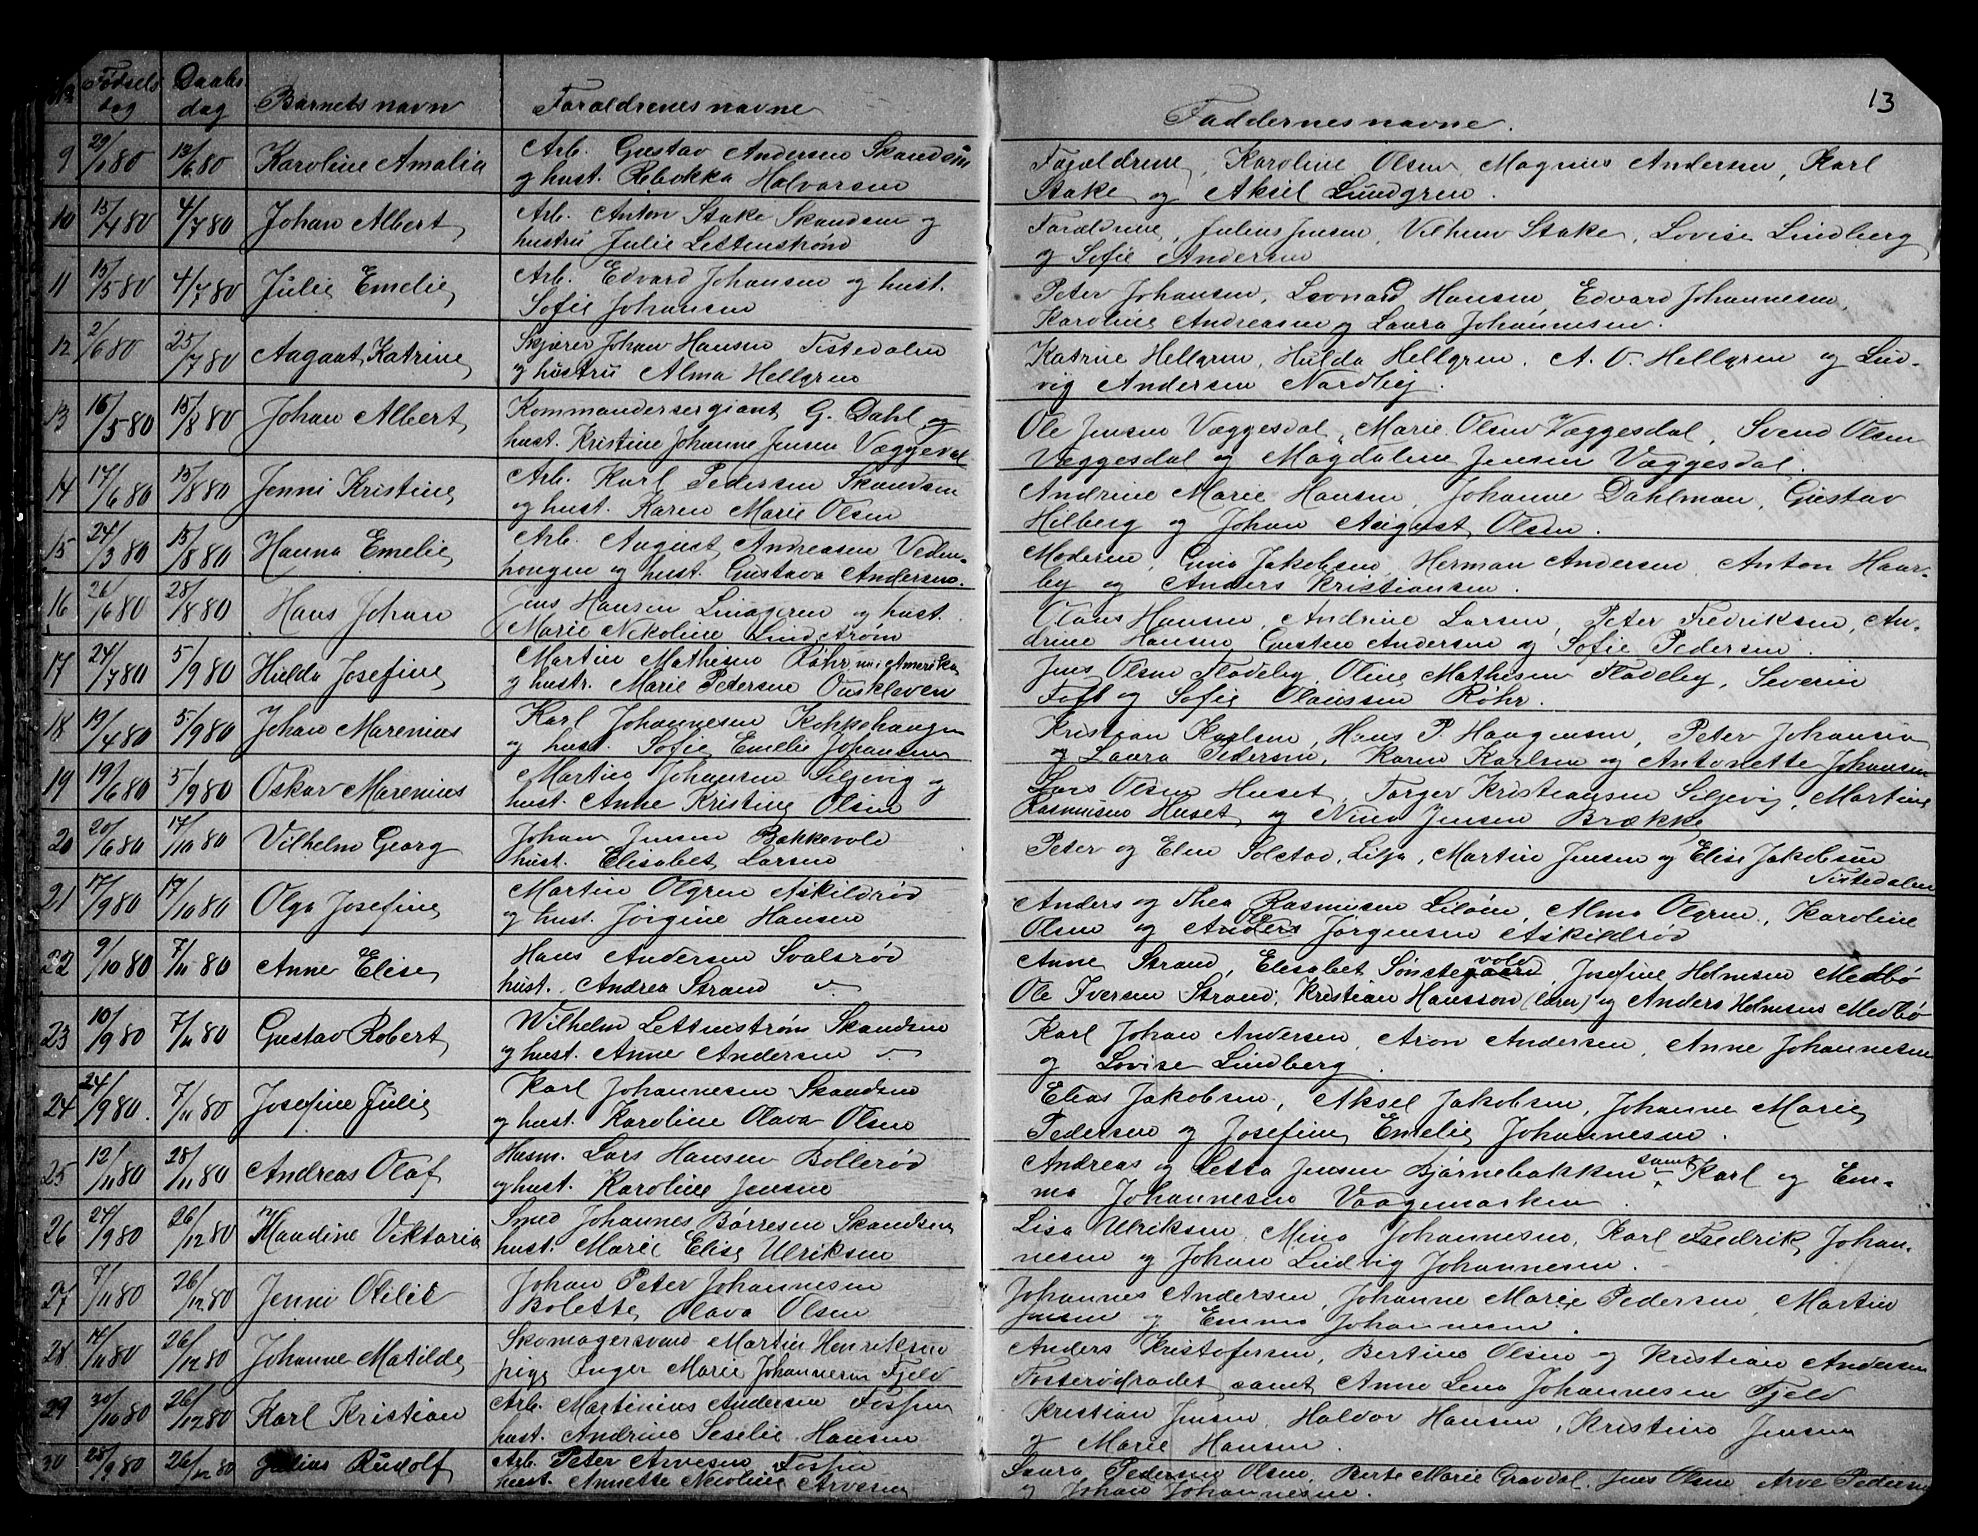 13
No Fødsels dag Daabs dag Barnets navn Forældrenes navne Faddernes navne.
9 29/1 80 13/6 80 Karoline Amalia Arb. Gustav Andersen Skandsen
og hust. Rebekka Halvorsen
Forældrene, Karoline Olsen, Magnus Andersen, Karl
Stake og Aksel Lundgren.
10 15/4 80 4/7 80 Johan Albert Arb. Anton Stake Skandsen og
hustru Julie Lettenstrøm
Forældrene, Julius Jensen, Vilhelm Stake, Lovise Lindberg
og Sofie Andersen
11 15/5 80 4/7 80 Julie Emelie Arb. Edvard Johansen og hust.
Sofie Johansen
Peter Johansen, Leonard Hansen, Edvard Johannesen,
Karoline Andreasen og Laura Johannesen.
12 2/6 80 25/7 80 Aagaat Katrine Skjærer Johan Hansen Tistedalen
og hustru Alma Hellgren
Katrine Hellgren, Hulda Hellgren, A. O. Hellgren og Lud-
vig Andersen Nordbej.
13 16/5 80 15/8 80 Johan Albert Kommandersergiant G. Dahl og
hust. Kristine Johanne Jensen Væggeval
Ole Jensen Væggesdal, Marie Olsen Væggesdal, Svend Olsen
Væggesdal og Magdalene Jensen Væggesdal.
14 17/6 80 15/8 80 Jenni Kristine Arb. Karl Pedersen Skandsen
og hust. Karen Marie Olsen
Andrine Marie Hansen, Johanne Dahlman, Gustav
Hilberg og Johan August Olsen.
15 24/3 80 15/8 80 Hanna Emelie Arb. August Andreasen Veden-
hongen og hust. Gustava Andersen.
Moderen, Gina Jakobsen, Herman Andersen, Anton Haar-
by og Anders Kristiansen.
16 26/6 80 28/8 80 Hans Johan Jens Hansen Lindgren og hust.
Marie Nikoline Lindstrøm
Olaus Hansen, Andrine Larsen, Peter Fredriksen, An-
drine Hansen, Gusten Andersen og Sofie Pedersen.
17 24/7 80 5/9 80 Hulda Josefine Martin Mathisen Røhr nu i Amerika
og hustr. Marie Pedersen Ouskleven
Jens Olsen Flodeby, Oline Mathisen Flodeby, Severin
Toft og Sofie Olaussen Røhr.
18 19/4 80 5/9 80 Johan Marenius Karl Johannesen Kokkehaugen
og hust. Sofie Emelie Johansen
Kristian Karlsen, Hans P. Haagensen, Peter Johansen
og Laura Pedersen, Karen Karlsen og Antonette Johansen
19 19/6 80 5/9 80 Oskar Marenius Martin Johansen Siljevig og
hust. Anne Kristine Olsen
Lars Olsen Huset, Torger Kristiansen Siljevig, Martine
Rasmusen Huset og Nina Jensen Brække
20 20/6 80 17/10 80 Vilhelm Georg Johan Jensen Bakkevold
hust. Elisabet Larsen
Peter og Elen Solstad, Lilja, Martin Jensen og Elise Jakobsen
Tistedalen
21 17/9 80 17/10 80 Olga Josefine Martin Olgren Askildrød
og hust. Jørgine Hansen
Anders og Thea Rasmusen Liløen, Alma Olgren, Karoline
Olsen og Anders Ole Jørgensen Askildrød
22 9/10 80 7/11 80 Anne Elise Hans Andersen Svalsrød
hust. Andrea Strand
Anne Strand, Elisabet Sønstegaard vold Josefine Holmesen Medbø
Ole Iversen Strand, Kristian Hansson (lærer) og Anders Holmesen Medbø
23 10/9 80 7/11 80 Gustav Robert Wilhelm Lettenstrøm Skandsen
og hust. Anne Andersen
Karl Johan Andersen, Aron Andersen, Anne Johannesen
og Lovise Lindberg.
24 24/9 80. 7/11 80 Josefine Julie Karl Johannesen Skandsen
og hust. Karoline Olava Olsen
Elias Jakobsen, Aksel Jakobsen, Johanne Marie
Pedersen og Josefine Emelie Johannesen.
25 12/11 80 28/11 80 Andreas Olaf Husm. Lars Hansen Bollerød
og hust. Karoline Jensen
Andreas og Letta Jensen Bjørnebakken samt Karl og Em-
ma Johannesen Vaagemarken.
26 24/9 80 26/12 80 Maudine Viktoria Smed Johannes Børresen Skandsen
hust. Marie Elise Ulriksen
Lisa Ulriksen, Mina Johannesen, Karl Fredrik Johan-
nesen og Johan Ludvig Johannesen.
27 7/11 80 26/12 80 Jenni Otilie Johan Peter Johannesen
Bolette Olava Olsen
Johannes Andersen, Johanne Marie Pedersen Martin
Jensen og Emma Johannesen.
28 14/11 80 26/12 80 Johanne Matilde Skomagersvend Martin Henriksen
pige Inger Marie Johannesen Fjeld
Anders Kristofersen, Bertine Olsen og Kristian Andersen
Fosterødrødet samt Anne Lena Johannesen Fjeld
29 30/10 80 26/12 80 Karl Kristian Arb. Martinius Andersen Fossen
hust. Andrine Seselie Hansen
Kristian Jensen, Haldor Hansen, Kristine Jensen
og Marie Hansen.
30 28/9 80 26/12 80 Julius Rudolf Arb. Peter Arvesen Fossen
hust. Annette Nicoline Arvesen
Laura Pedersen Olsen, Berte Marie Gravdal, Jens Olsen, Arve Pedersen
og Johan Johannesen.